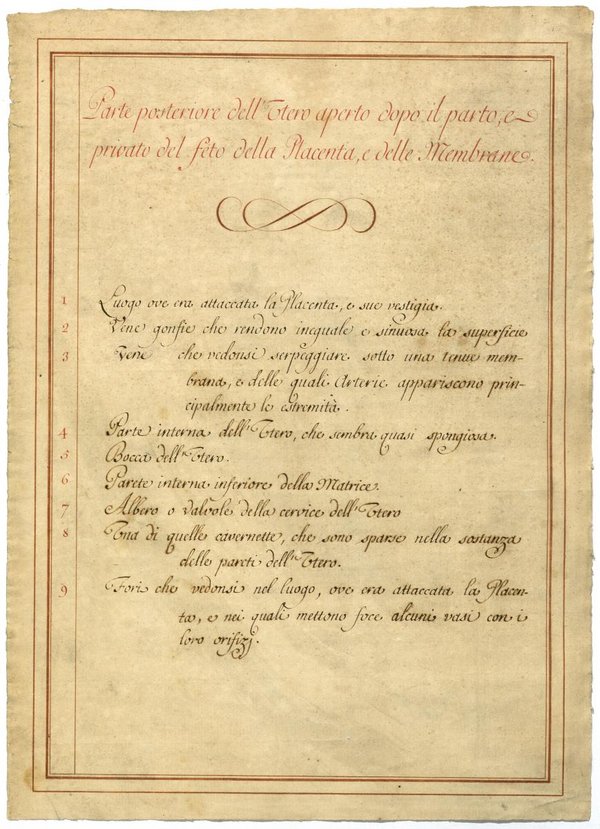 Parte posteriore dell'Utero aperto dopo il parto, e
privato del feto della Placenta, e delle Membrane.
1 Luogo ove era attaccata la Placenta, e sue vestigia.
2 Vene gonfie che rendono ineguale e sinuosa la superficie
3 Vene che vedonsi serpeggiare sotto una tenue mem-
brana, e delle quali Arterie appariscono prin-
cipalmente le estremità.
4 Parte interna dell'Utero, che sembra quasi spongiosa.
5 Bocca dell'Utero.
6 Parete interna inferiore della Matrice.
7 Albero o valvole della cervice dell'Utero
8 Una di quelle cavernette, che sono sparse nella sostanza
delle pareti dell'Utero.
9 Fori che vedonsi nel luogo, ove era attaccata la Placen-
ta, e nei quali mettono foce alcuni vasi con i
loro orifizj.